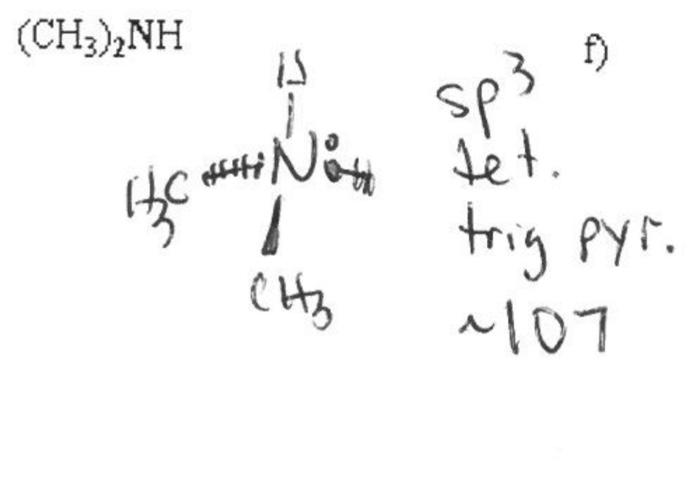 (CH₃)₂NH
f)
N
H₃C
CH₃
sp³
tet.
trig pyr.
~107